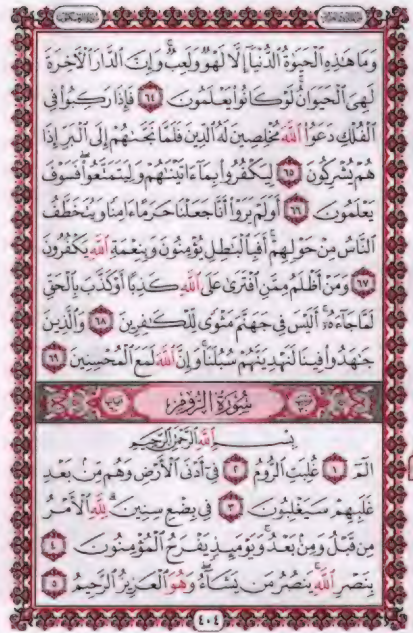 وَمَا هَٰذِهِ ٱلْحَيَوٰةُ ٱلدُّنْيَآ إِلَّا لَهْوٌ وَلَعِبٌ ۚ وَإِنَّ ٱلدَّارَ ٱلْءَاخِرَةَ
لَهِىَ ٱلْحَيَوَانُ ۚ لَوْ كَانُوا۟ يَعْلَمُونَ ٦٤ فَإِذَا رَكِبُوا۟ فِى
ٱلْفُلْكِ دَعَوُا۟ ٱللَّهَ مُخْلِصِينَ لَهُ ٱلدِّينَ فَلَمَّا نَجَّىٰهُمْ إِلَى ٱلْبَرِّ إِذَا
هُمْ يُشْرِكُونَ ٦٥ لِيَكْفُرُوا۟ بِمَآ ءَاتَيْنَٰهُمْ وَلِيَتَمَتَّعُوا۟ ۖ فَسَوْفَ
يَعْلَمُونَ ٦٦ أَوَلَمْ يَرَوْا۟ أَنَّا جَعَلْنَا حَرَمًا ءَامِنًا وَيُتَخَطَّفُ
ٱلنَّاسُ مِنْ حَوْلِهِمْ ۚ أَفَبِٱلْبَٰطِلِ يُؤْمِنُونَ وَبِنِعْمَةِ ٱللَّهِ يَكْفُرُونَ
٦٧ وَمَنْ أَظْلَمُ مِمَّنِ ٱفْتَرَىٰ عَلَى ٱللَّهِ كَذِبًا أَوْ كَذَّبَ بِٱلْحَقِّ
لَمَّا جَآءَهُۥٓ ۚ أَلَيْسَ فِى جَهَنَّمَ مَثْوًى لِّلْكَٰفِرِينَ ٦٨ وَٱلَّذِينَ
جَٰهَدُوا۟ فِينَا لَنَهْدِيَنَّهُمْ سُبُلَنَا ۚ وَإِنَّ ٱللَّهَ لَمَعَ ٱلْمُحْسِنِينَ ٦٩
سُورَةُ الرُّومِ
بِسْمِ ٱللَّهِ ٱلرَّحْمَٰنِ ٱلرَّحِيمِ
الٓمٓ ١ غُلِبَتِ ٱلرُّومُ ٢ فِىٓ أَدْنَى ٱلْأَرْضِ وَهُم مِّنۢ بَعْدِ
غَلَبِهِمْ سَيَغْلِبُونَ ٣ فِى بِضْعِ سِنِينَ ۗ لِلَّهِ ٱلْأَمْرُ
مِن قَبْلُ وَمِنۢ بَعْدُ ۚ وَيَوْمَئِذٍ يَفْرَحُ ٱلْمُؤْمِنُونَ ٤
بِنَصْرِ ٱللَّهِ ۚ يَنصُرُ مَن يَشَآءُ ۖ وَهُوَ ٱلْعَزِيزُ ٱلرَّحِيمُ ٥
٤٠٤